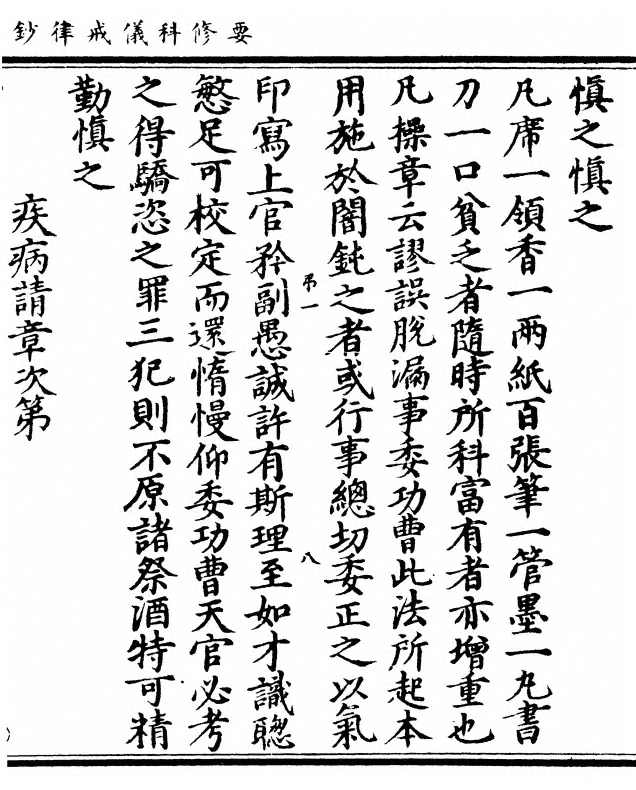 要修科儀戒律鈔
慎之慎之
凡席一領香一兩紙百張筆一管墨一丸書
刀一口貧乏者隨時所科富有者亦增重也
凡操章云謬誤脫漏事委功曹此法所起本
用施於闇鈍之者或行事總切委正之以氣
弔一
八
印寫上官矜副愚誠許有斯理至如才識聰
慜足可校定而還惰慢仰委功曹天官必考
之得驕恣之罪三犯則不原諸祭酒特可精
勤慎之
疾病請章次第